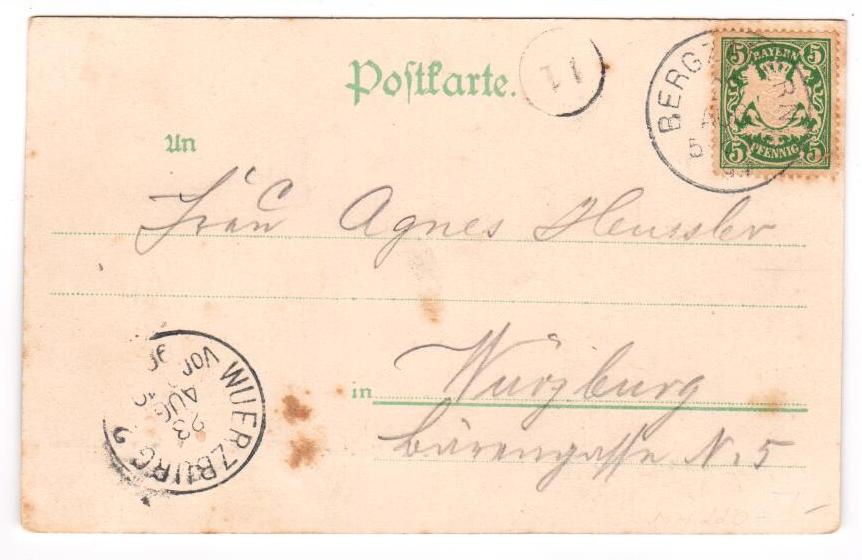 Postkarte.
11
BERGZ RN
5
5 BAYERN 5
5 PFENNIG 5
An
Frau Agnes Heussler
in Würzburg
Bärengasse N. 5
WUERZBURG 2
23
AUG
VOR